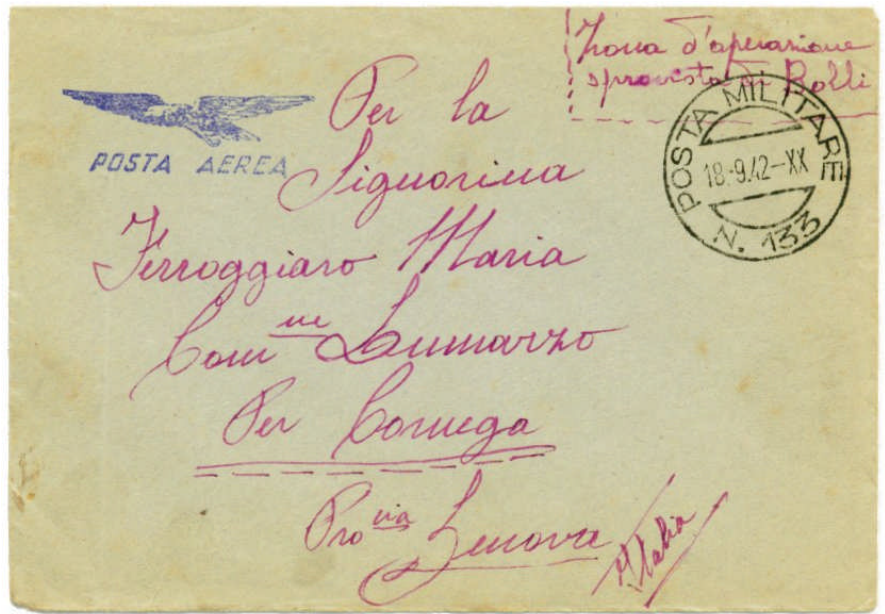 Zona d'operazione
sprovvista di Bolli
POSTA AEREA
POSTA MILITARE
18-9.42-XX
N. 133
Per la
Signorina
Ferroggiaro Maria
Com ne Lumarzo
Per Cornega
Pro via Genova
Italia